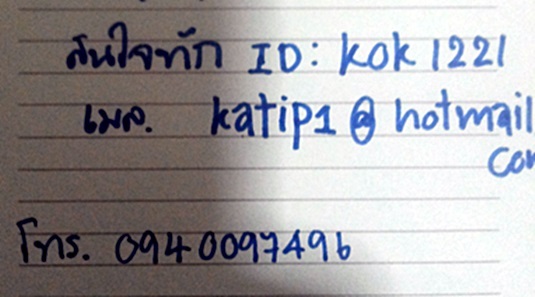 สนใจทัก ID: kok 1221
เมล. katip1@hotmail
com
โทร. 0940097496